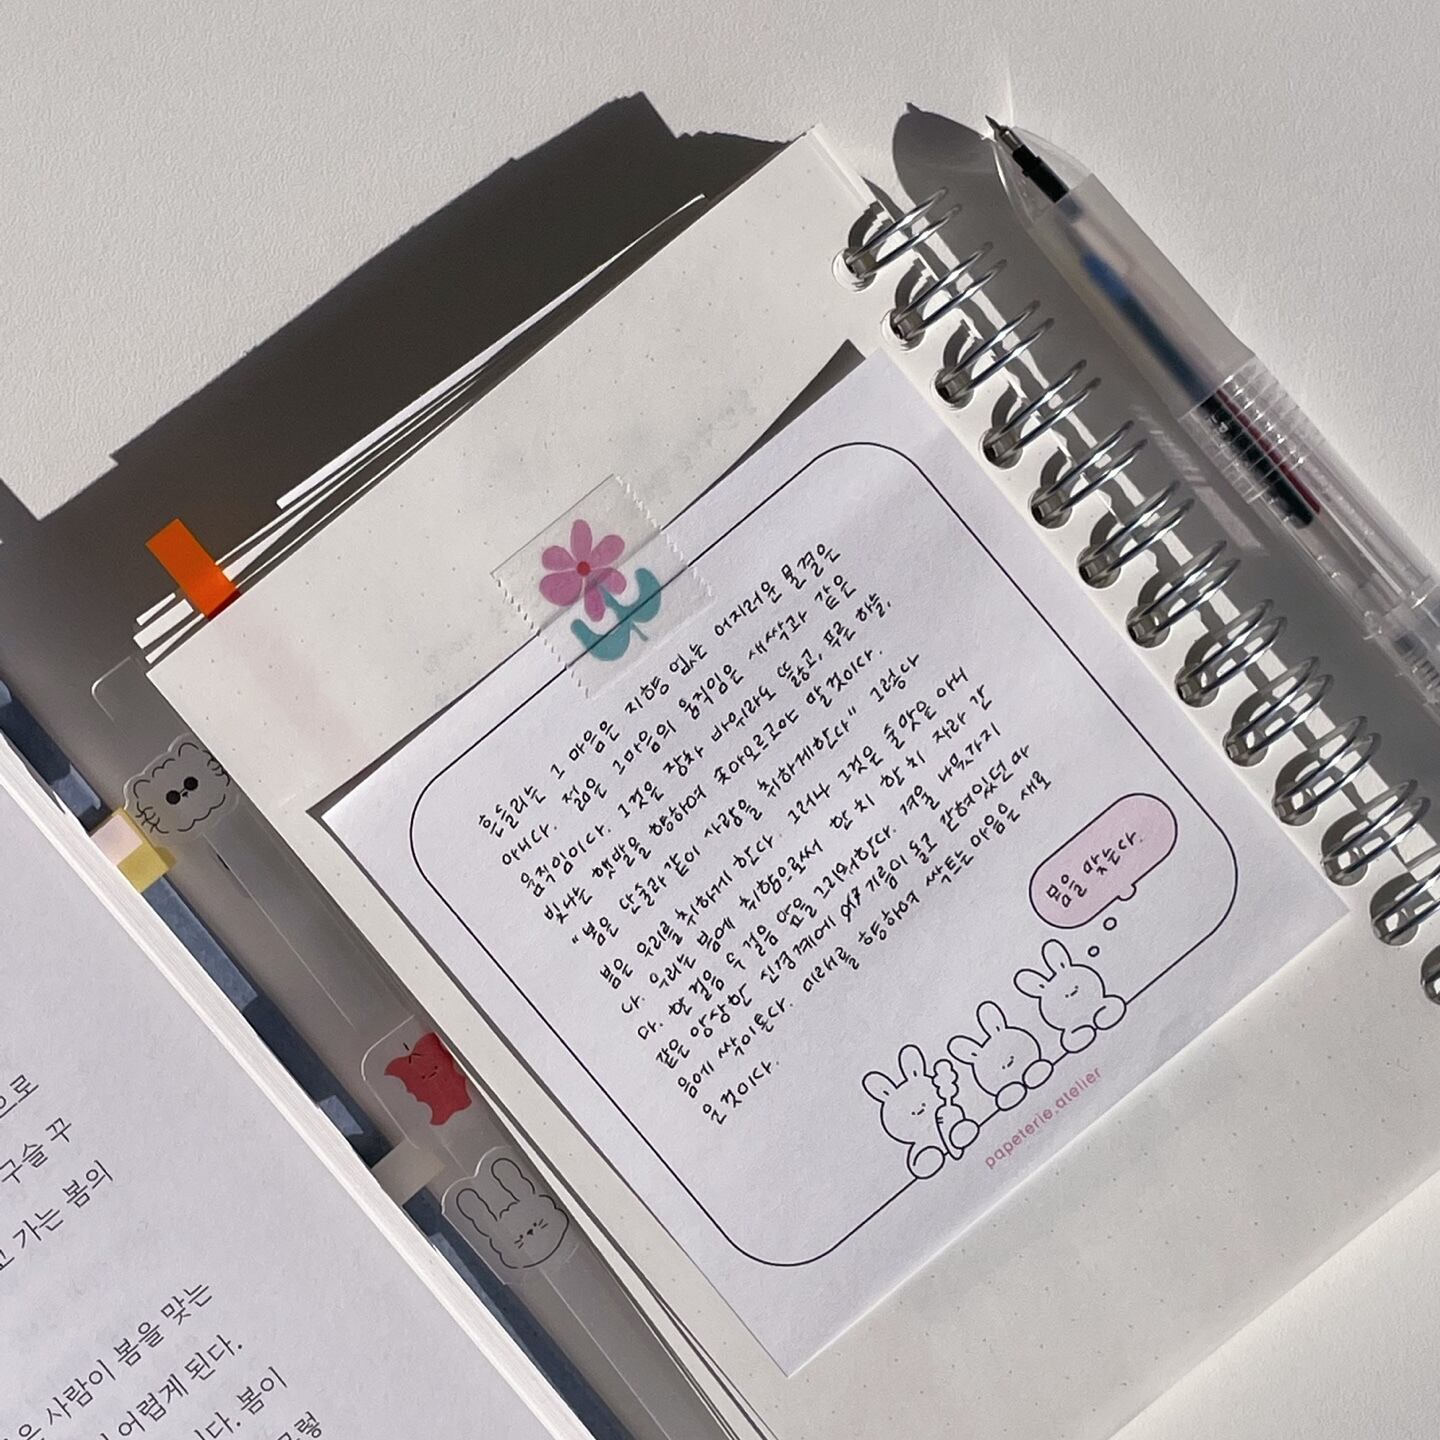 흔들리는 그 마음은 지향 없는 어지러운 물결은
아니다. 젊은 그마음의 움직임은 새싹과 같은
움직임이다. 그것은 장차 바위라도 뚫고, 푸른 하늘,
빛나는 햇발을 향하여 솟아오르고야 말 것이다.
"봄은 단술과 같이 사람을 취하게한다" 그렇다
봄은 우리를 취하게 한다. 그러나 그것은 술맛은 아니
다. 우리는 봄에 취함으로써 한 치 한 치 자라 간
다. 한 걸음 두 걸음 앞을 그리워한다. 겨울 나뭇가지
같은 앙상한 신경계에 기름이 돌고 갇혀있던 마
음에 싹이튼다. 미래를 향하여 싹트는 마음은 새로
운 것이다.
봄을 맞는다.
papeterie.atelier
으로
구슬 꾸
고 가는 봄의
은 사람이 봄을 맞는
어렵게 된다.
니다. 봄이
그렇